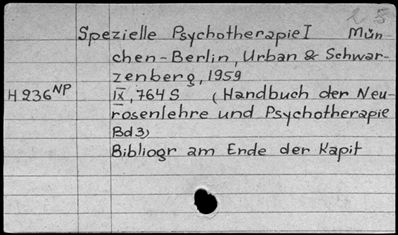 Spezielle Psychotherapie I Mün-
chen-Berlin, Urban & Schwar-
zenberg, 1959
H 236 NP IX, 764 S (Handbuch der Neu-
rosenlehre und Psychotherapie
Bd 3)
Bibliogr am Ende der Kapit